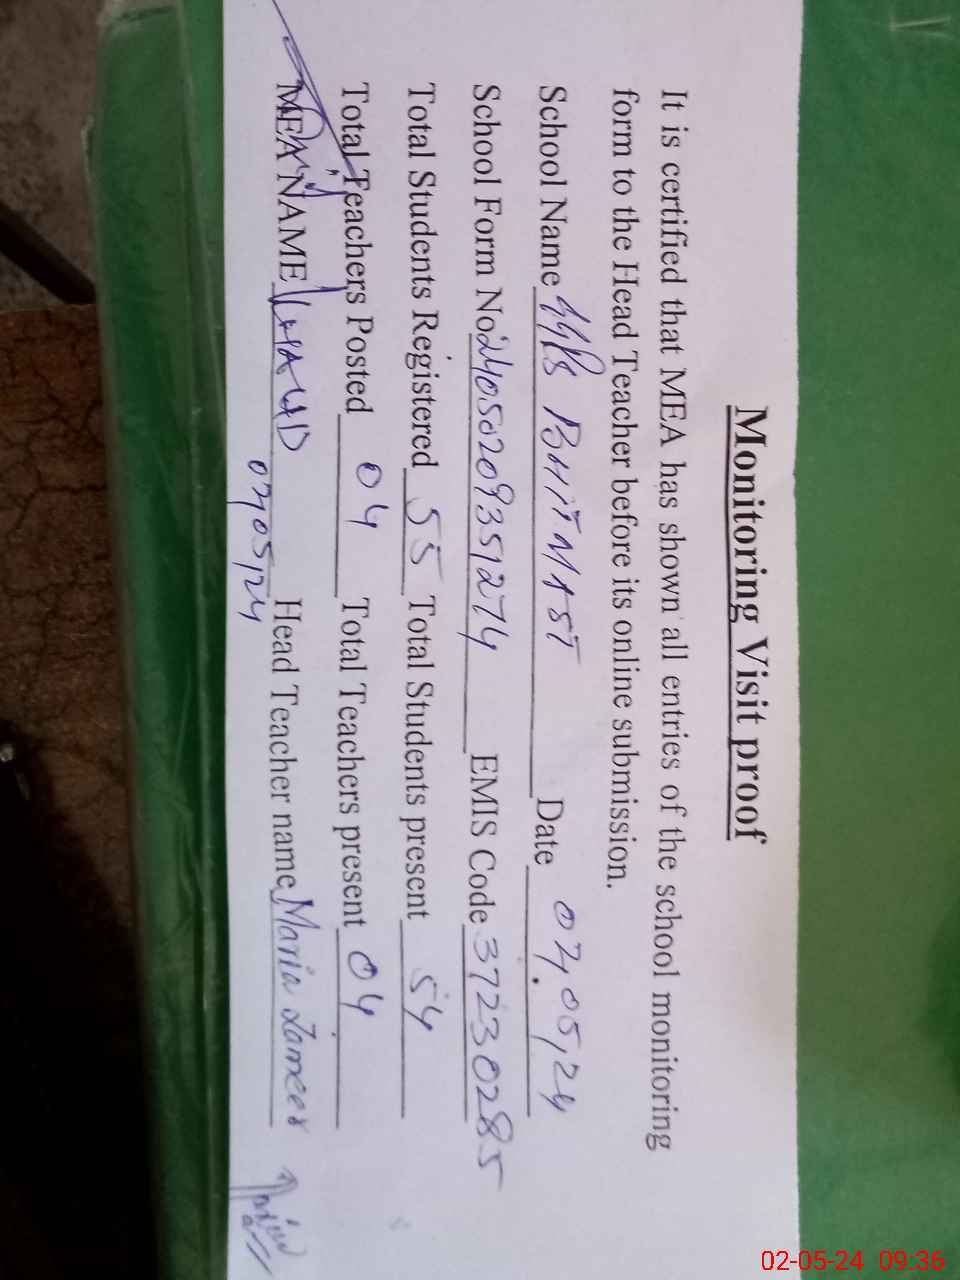 Monitoring Visit proof
It is certified that MEA has shown all entries of the school monitoring
form to the Head Teacher before its online submission.
School Name GGPS BHITMAST Date 02.05,24
School Form No 24050209351274 EMIS Code 37230285
Total Students Registered 55 Total Students present 54
Total Teachers Posted 04 Total Teachers present 04
MEA NAME Head Teacher name Maria Zameer
020524
02-05-24 09:36